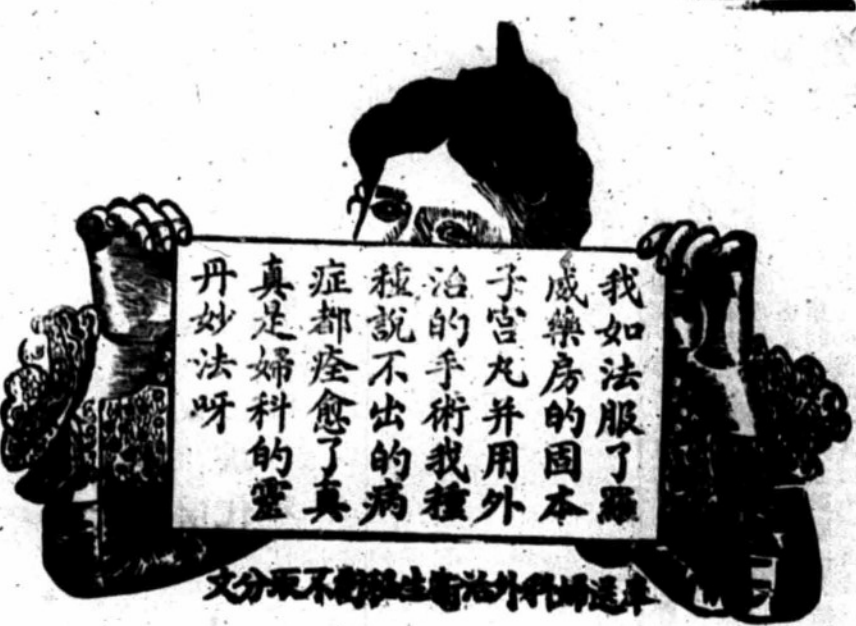 我如法服了羅
威藥房的固本
子宮丸并用外
治的手術我種
種説不出的病
症都痊愈了真
真是婦科的靈
丹妙法呀
奉送婦科外治衛生 不取分文